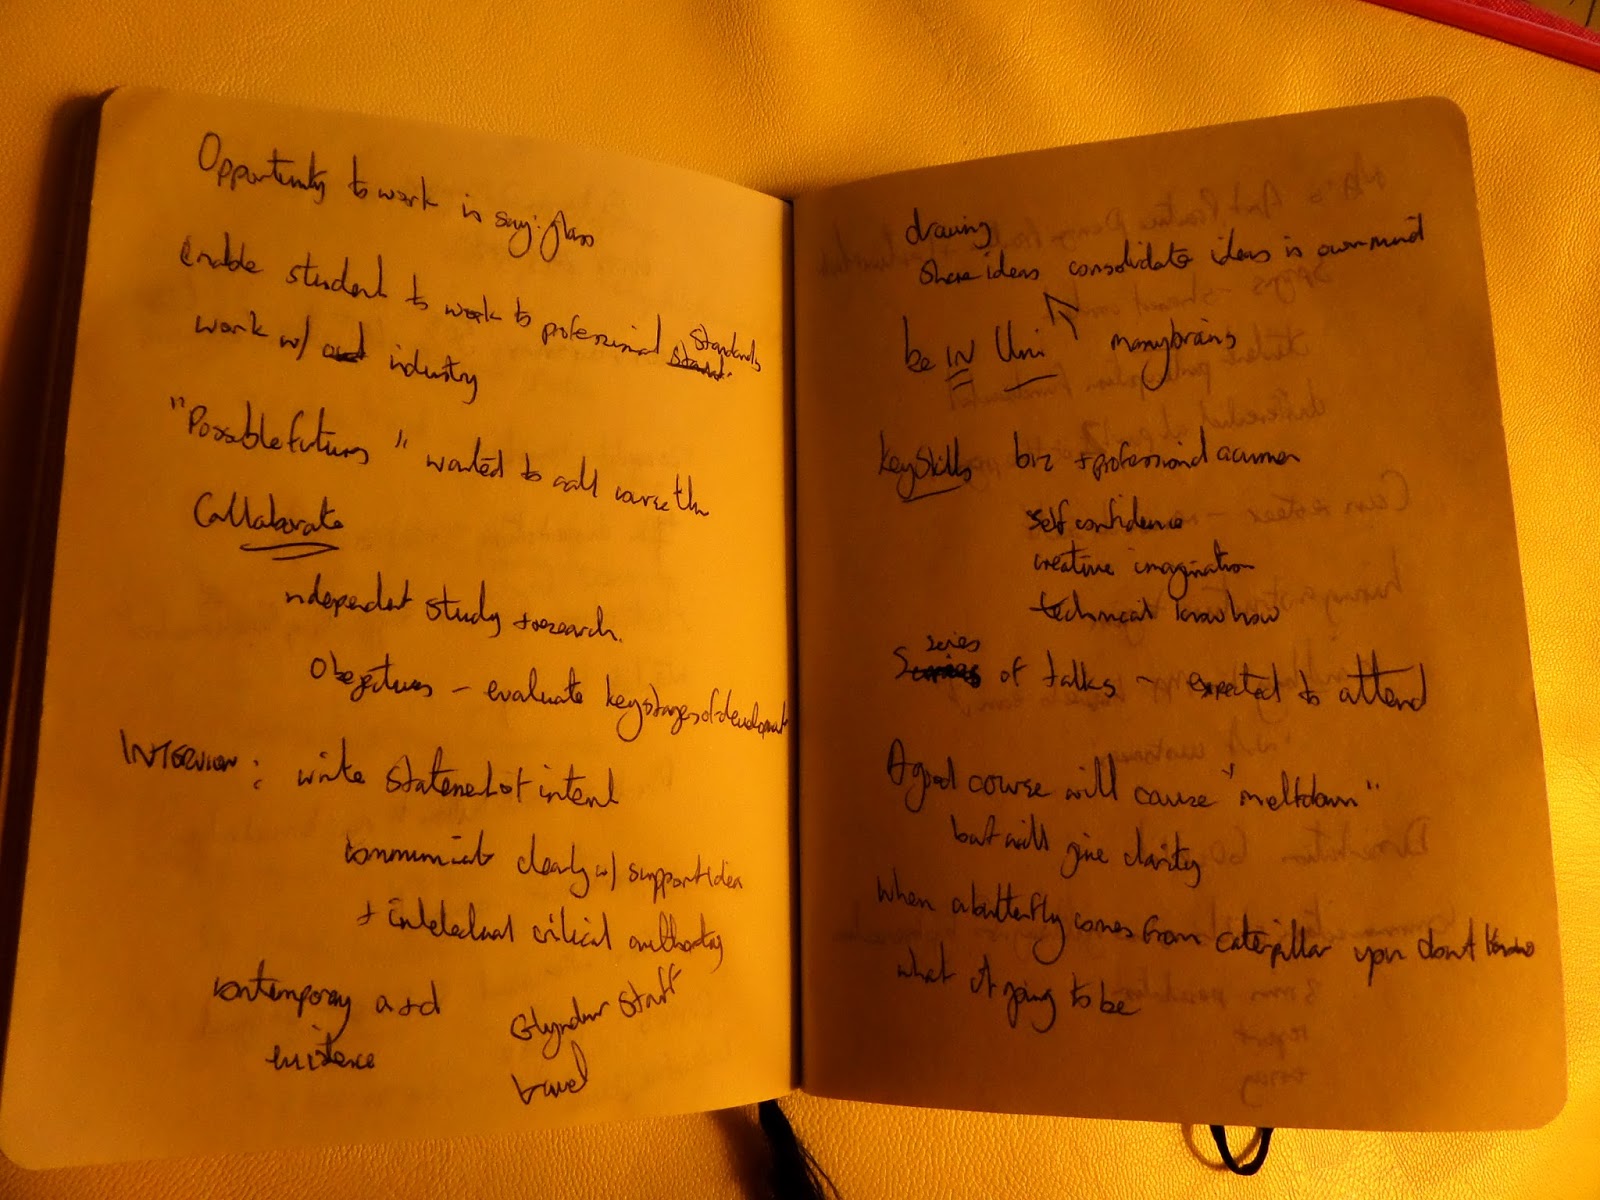 Opportunity to work in say: glass
Enable student to work to professional standards
work w/ industry
"Possible futures" wanted to call course this
Collaborate
independent study + research.
Objectives - evaluate key stages of development
INTERVIEW: write statement of intent
communicate clearly w/ support idea
+ intelectual critical authority
contemporary a+d
existence
Glyndwr staff
travel
drawing
Share ideas consolidate ideas in own mind
be IN Uni many brains
Key Skills biz + professional acumen
self confidence
creative imagination
technical know how
series
of talks - expected to attend
A good course will cause "meltdown"
but will give clarity
when a butterfly comes from caterpillar you dont know
what it going to be